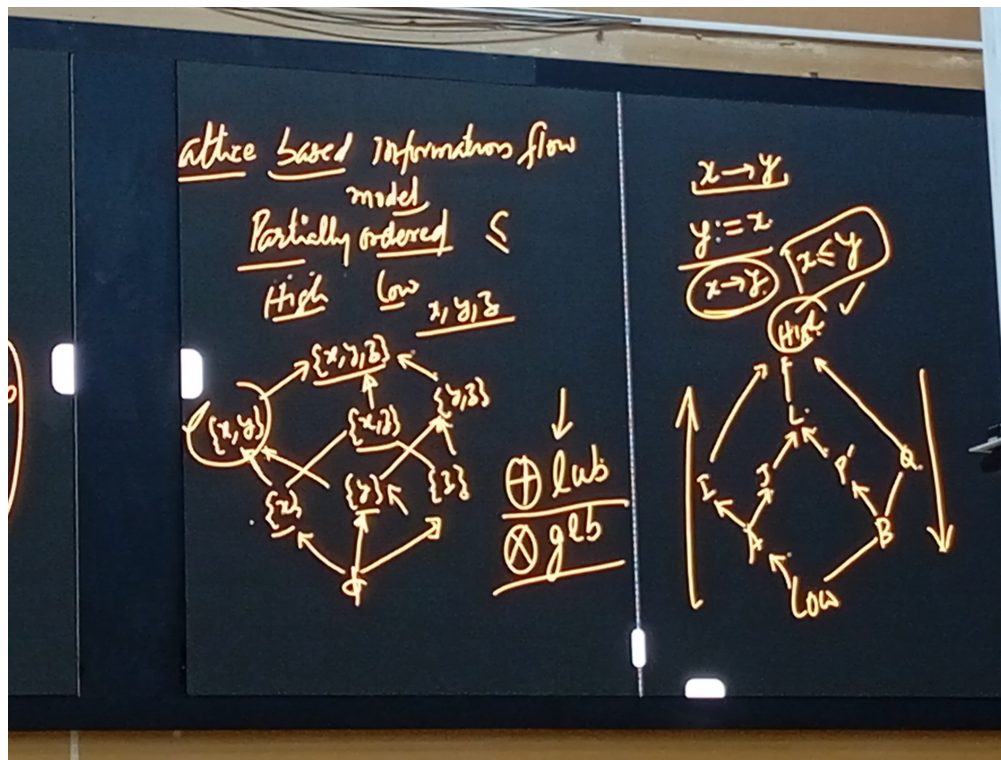 attice based Information flow
model
Partially ordered ≤
High Low
x, y, z
{x,y,z}
{x,y} {x,z} {y,z}
{x} {y} {z}
ϕ
⊕ lub
⊗ glb
x → y
y := x
x → y x ≤ y
High
L
I J P Q
A B
Low